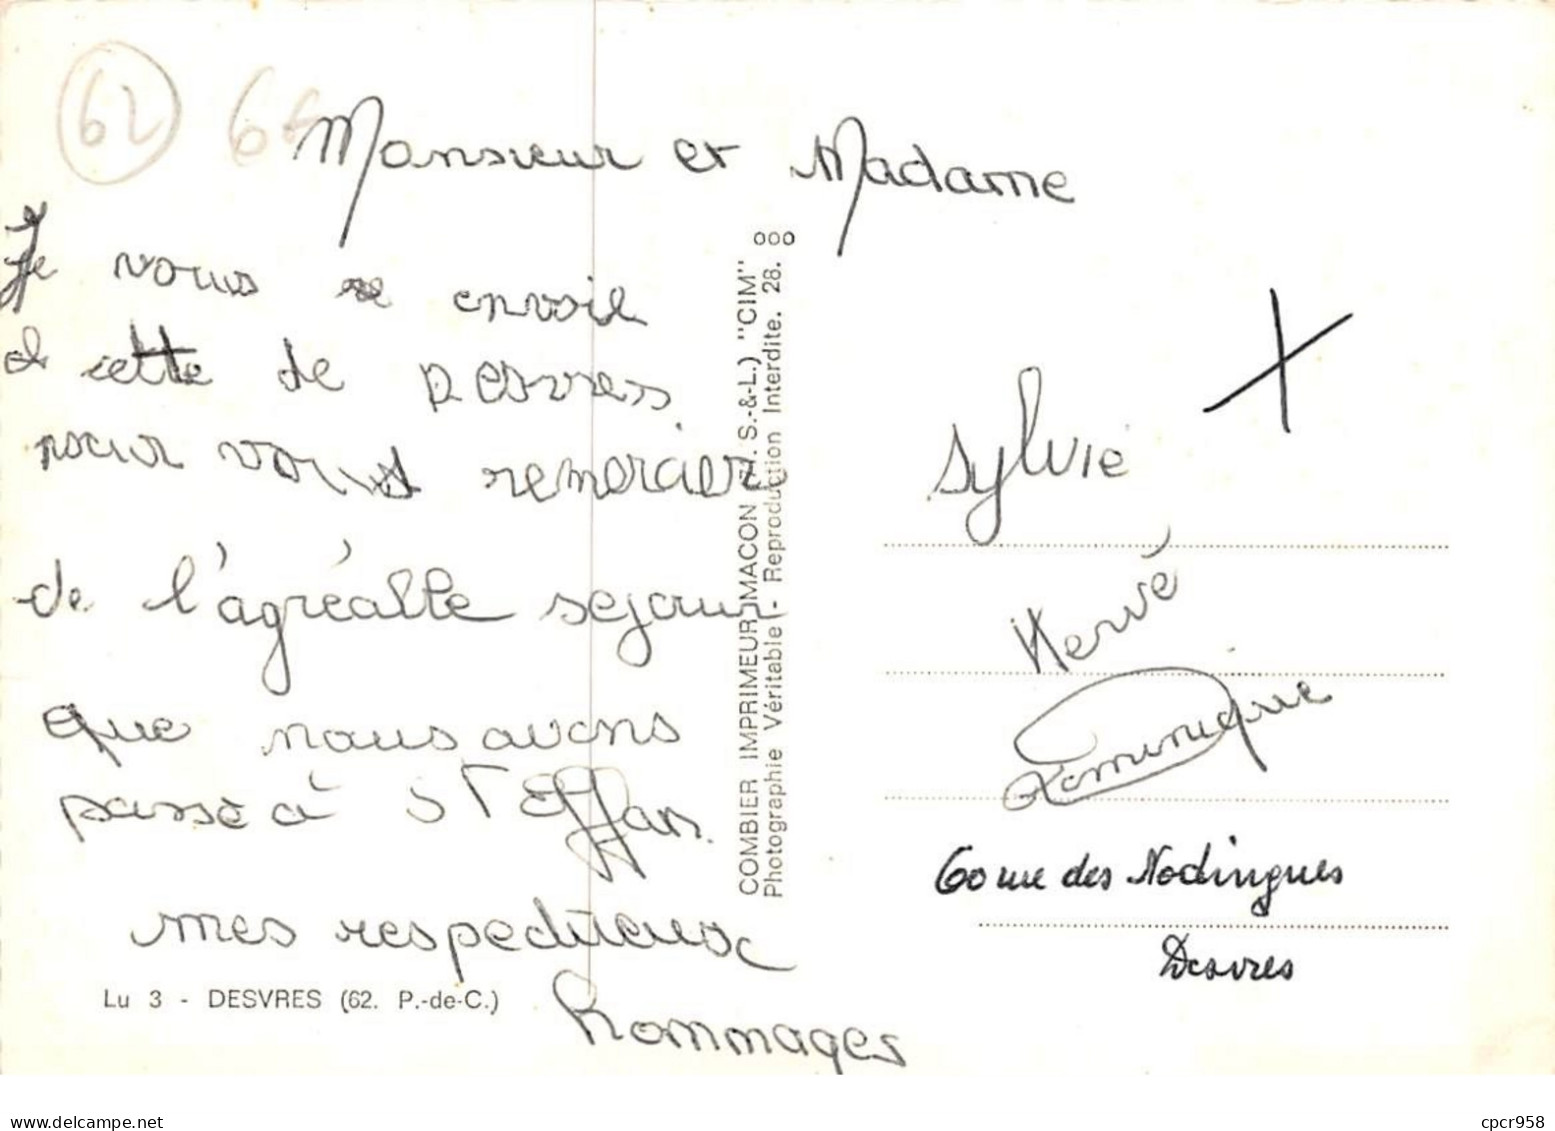 62
Monsieur et Madame
Je vous envoie
cette de Desvres.
pour vous remercier
de l'agréable sejour
que nous avons
passé à ST Effan.
mes respectueux
hommages
Lu 3 - DESVRES (62. P.-de-C.)
COMBIER IMPRIMEUR MACON S.-&-L.) "CIM"
Photographie Véritable - Reproduction Interdite. 28. ooo
Sylvie
Hervé
Dominique
60 rue des Nodingues
Desvres
www.delcampe.net
cpcr958